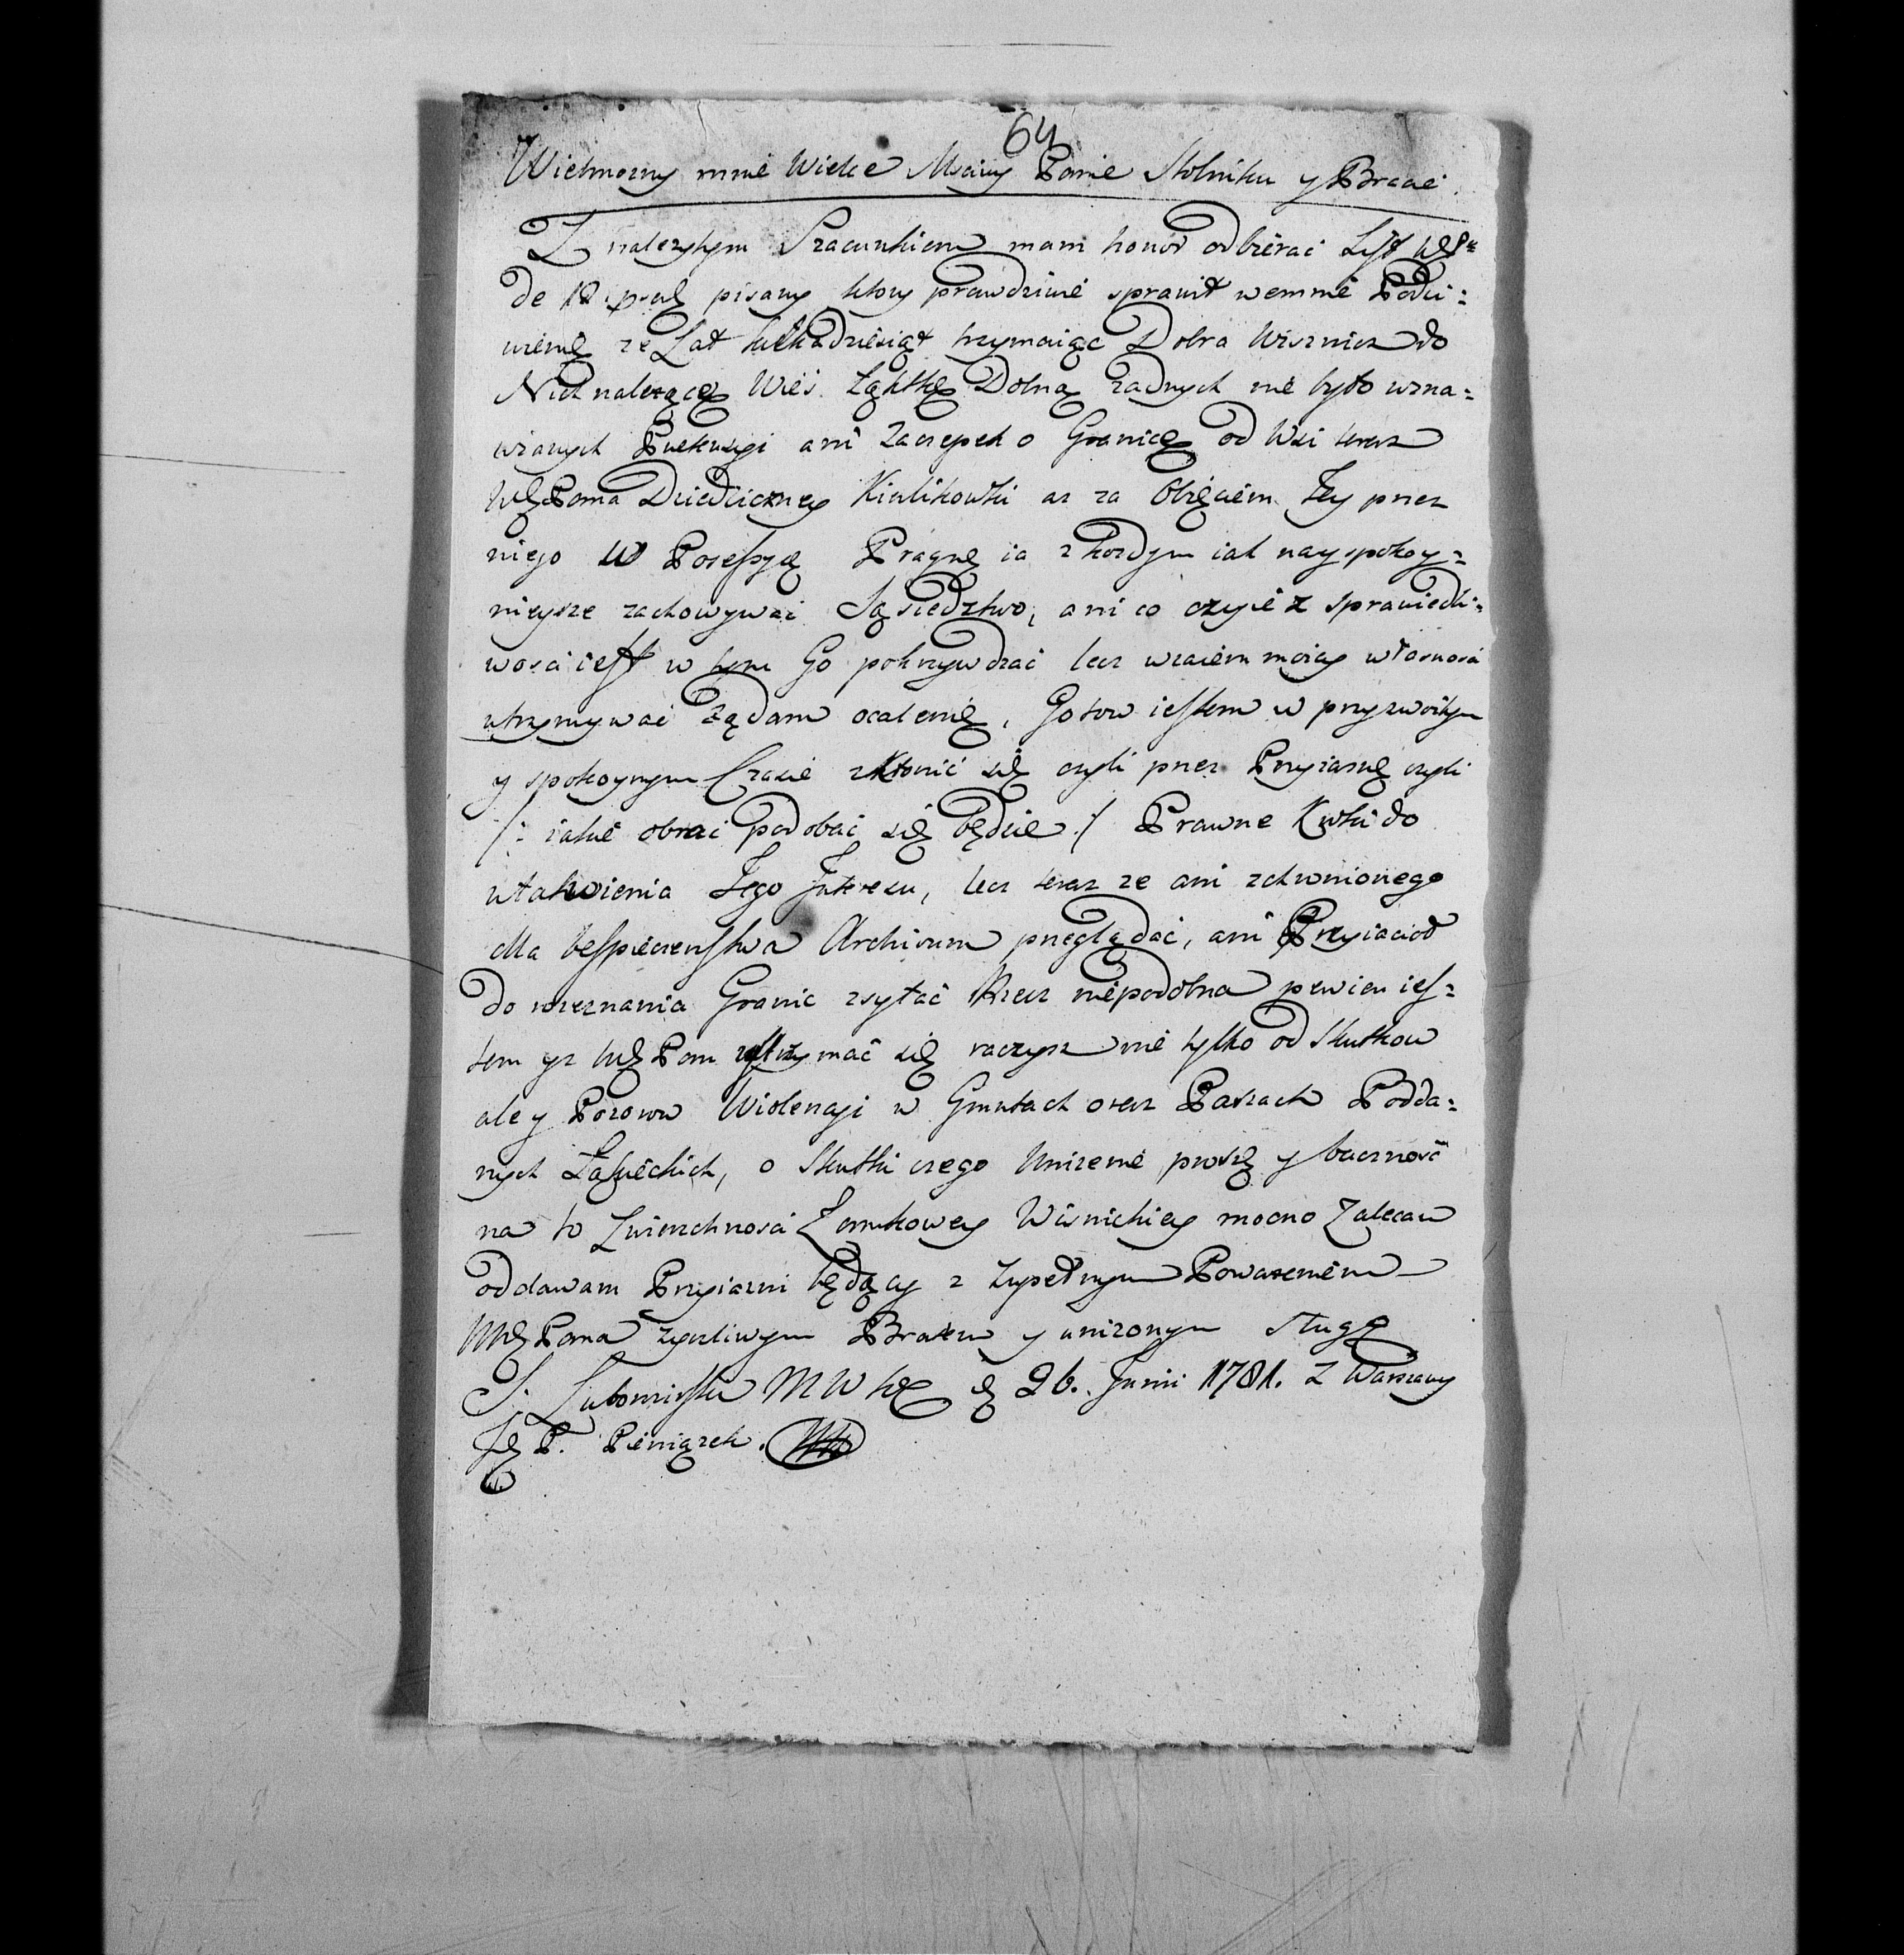 64
Wielmozny mnie Wielce Mściwy Panie Stolniku y Bracie
Z nalezytym Szacunkiem mam honor odbierać List WP
de 12 pisany ktory prawdziwie sprawił wemnie Podzi=
wienie ze Lat kilkadziesiąt trzymaiąc Dobra Wisznicz do
Nich nalezącą Wieś Łąktkę Dolną zadnych nie było wzna=
wianych Pretensyi ani Zaczepek o Granicę od Wsi teraz
WP Pana Dziedziczney Kierlikowki az za Obięciem Jey przez
niego w Possessyą Pragnę ia z kozdym iak nayspokoy=
nieysze zachowywać Sąsiedztwo, ani co czyie z sprawiedli=
wosci iest w tym Go pokrzywdzać lecz wzaiem moiey własnosci
utrzymywać Ządam ocalenie, Gotow iestem w przyzwoitym
y spokoynym Czasie skłonić się czyli przez Przyiaznę czyli
/: iakie obrać podobać się będzie :/ Prawne Kroki do
ułatwienia Tego Interesu, lecz teraz ze ani schronionego
dla bespieczenstwa Archivum przeglądać, ani Przyiacioł
do rozeznania Granic zsyłać Rzecz niepodobna pewien ies=
tem yz WP Pan wstrzymać się raczysz nie tylko od Skutkow
ale y Pozorow Wiolencyi w Gruntach oraz Paszach Podda=
nych Łąkteckich, o Skutki czego Unizenie proszę y baczność
na to Zwierzchności Zamkowey Wisnickiey mocno Zalecaw
oddawam Przyiazni będący z Zupełnym Powazeniem
WP Pana zyczliwym Bratem y unizonym sługą
S. Lubomirski M W K D 26. Junii 1781. Z Warszawy
J P. Pieniązek.